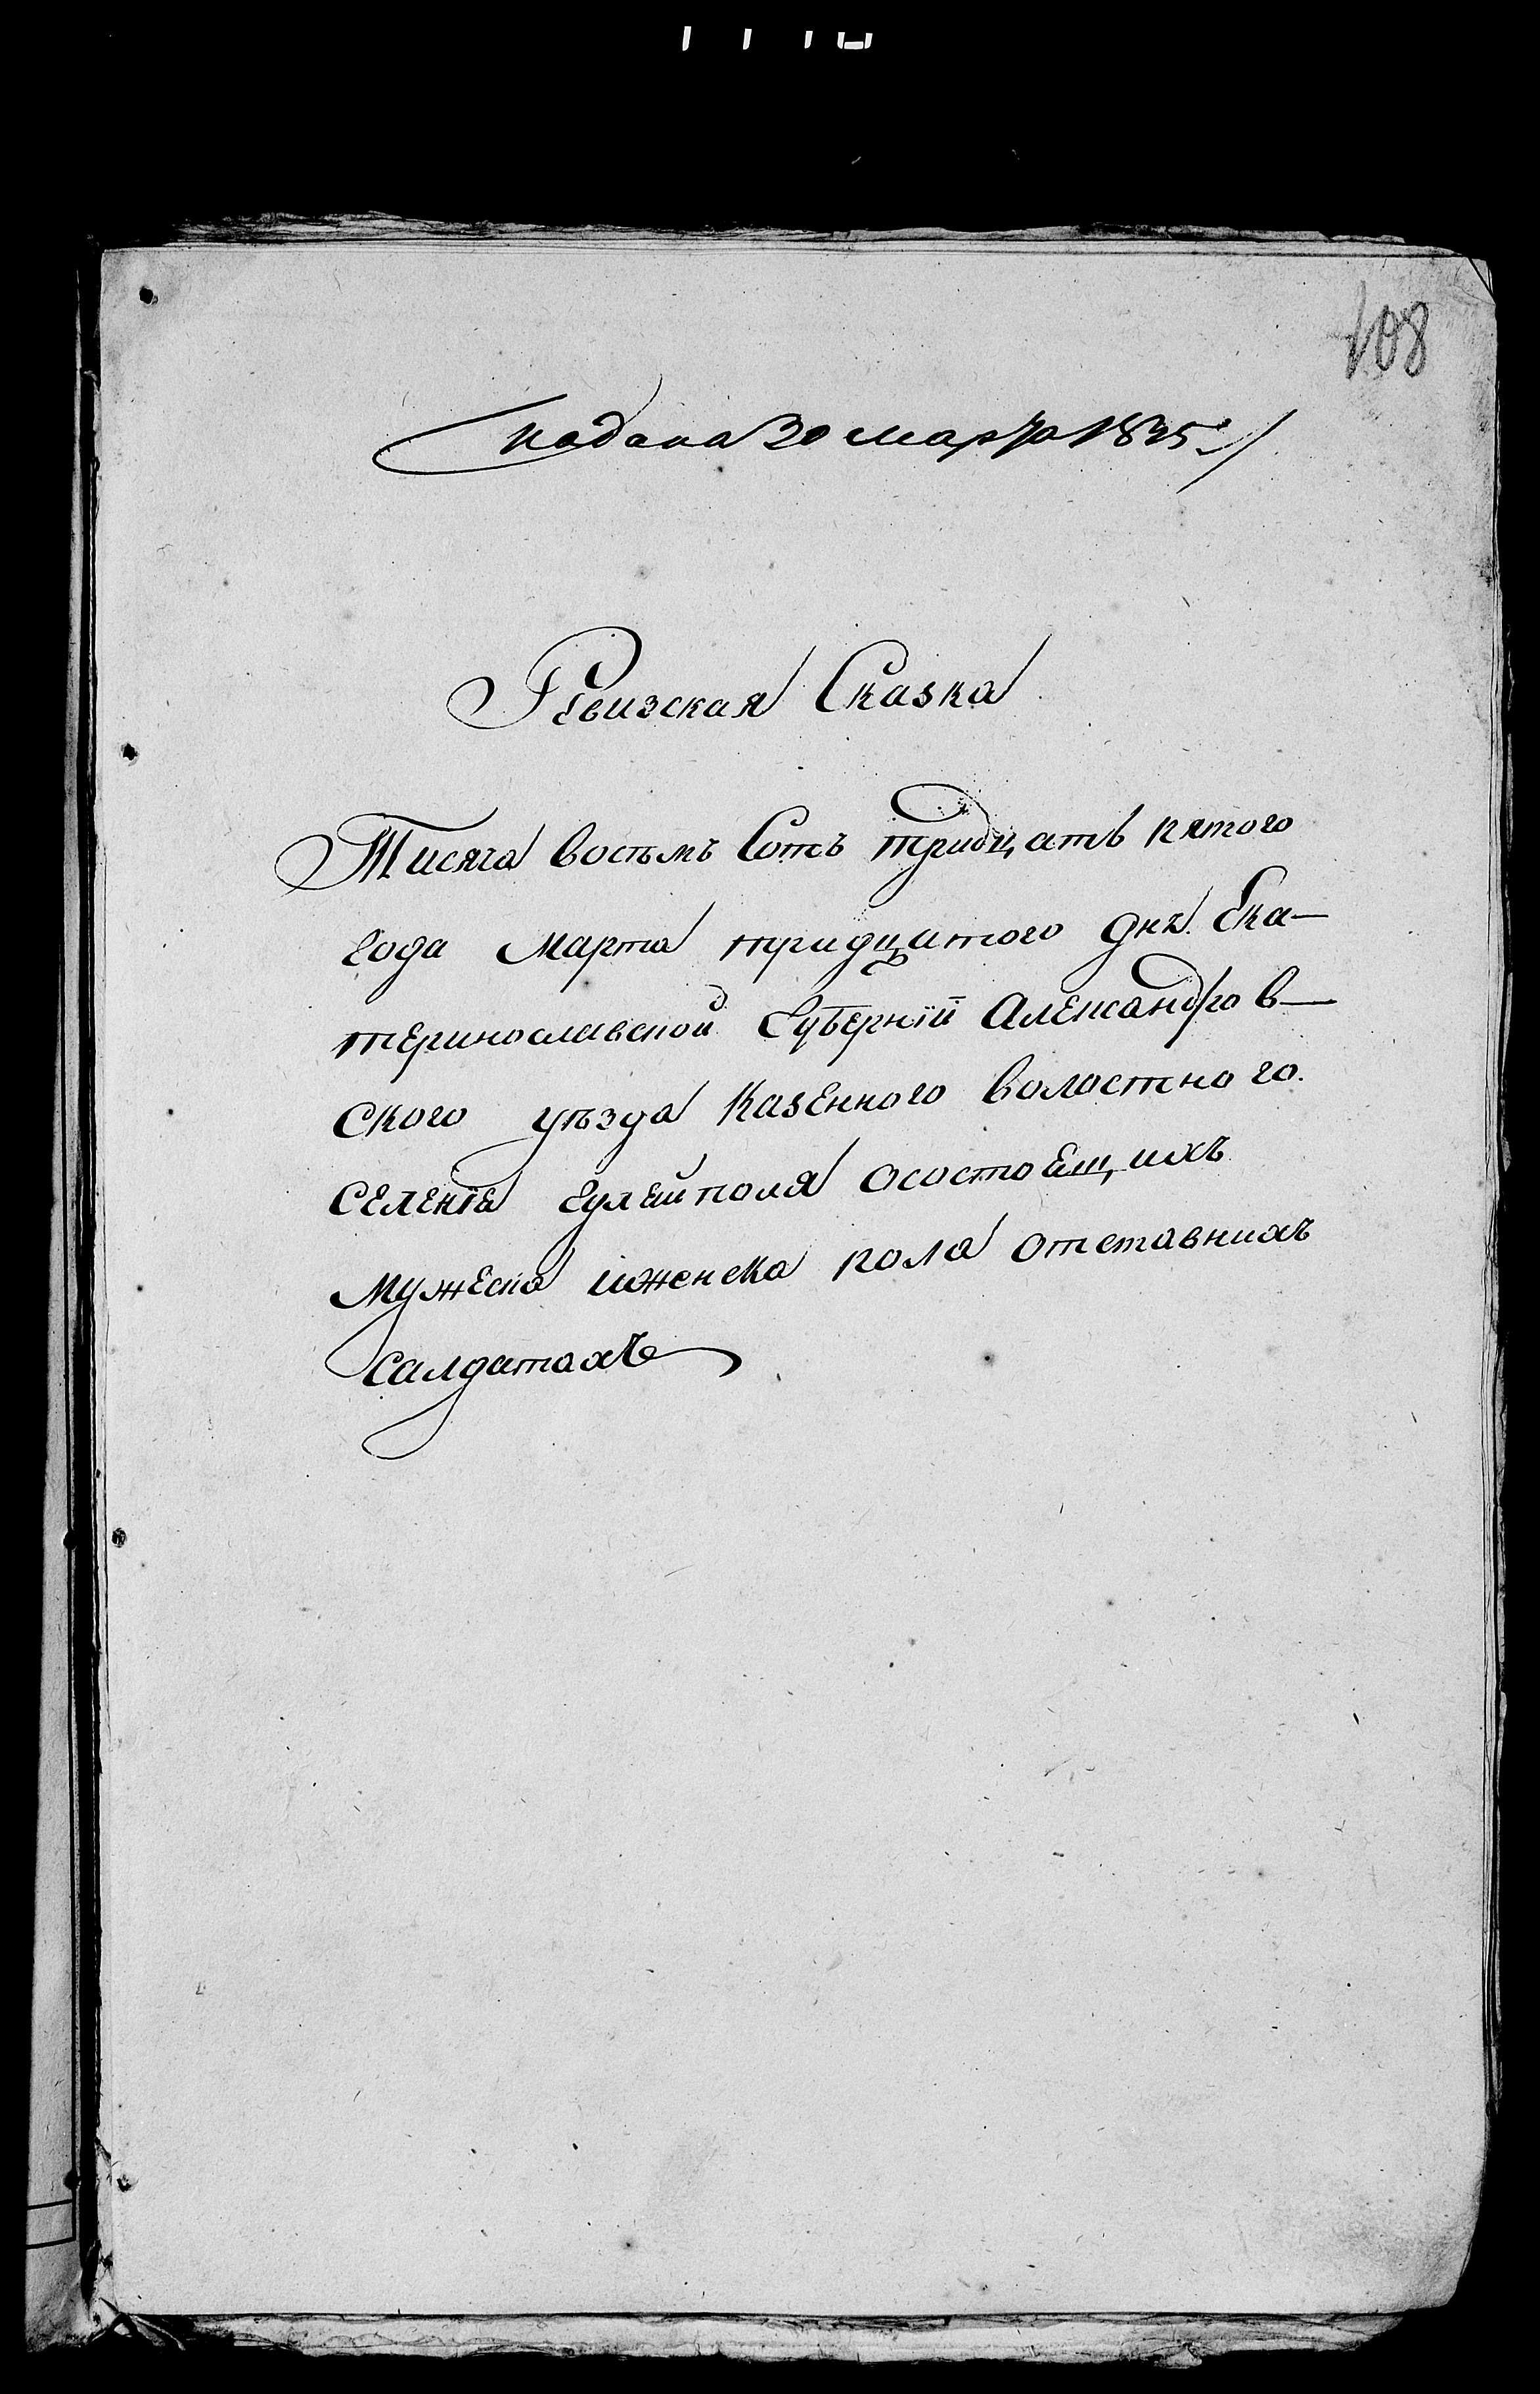 108
подана 30 марта 1835
Ревизская Сказка
Тисяча восъмъ Сотъ тридцать пятого
Года Марта тридцатого дня Ека—
теринославской Губернїи Александров—
ского уѣзда Казенного волостного
Селенїе Гулейполя осостоещихъ
Мужеска иженска пола отставнихъ
салдатахъ